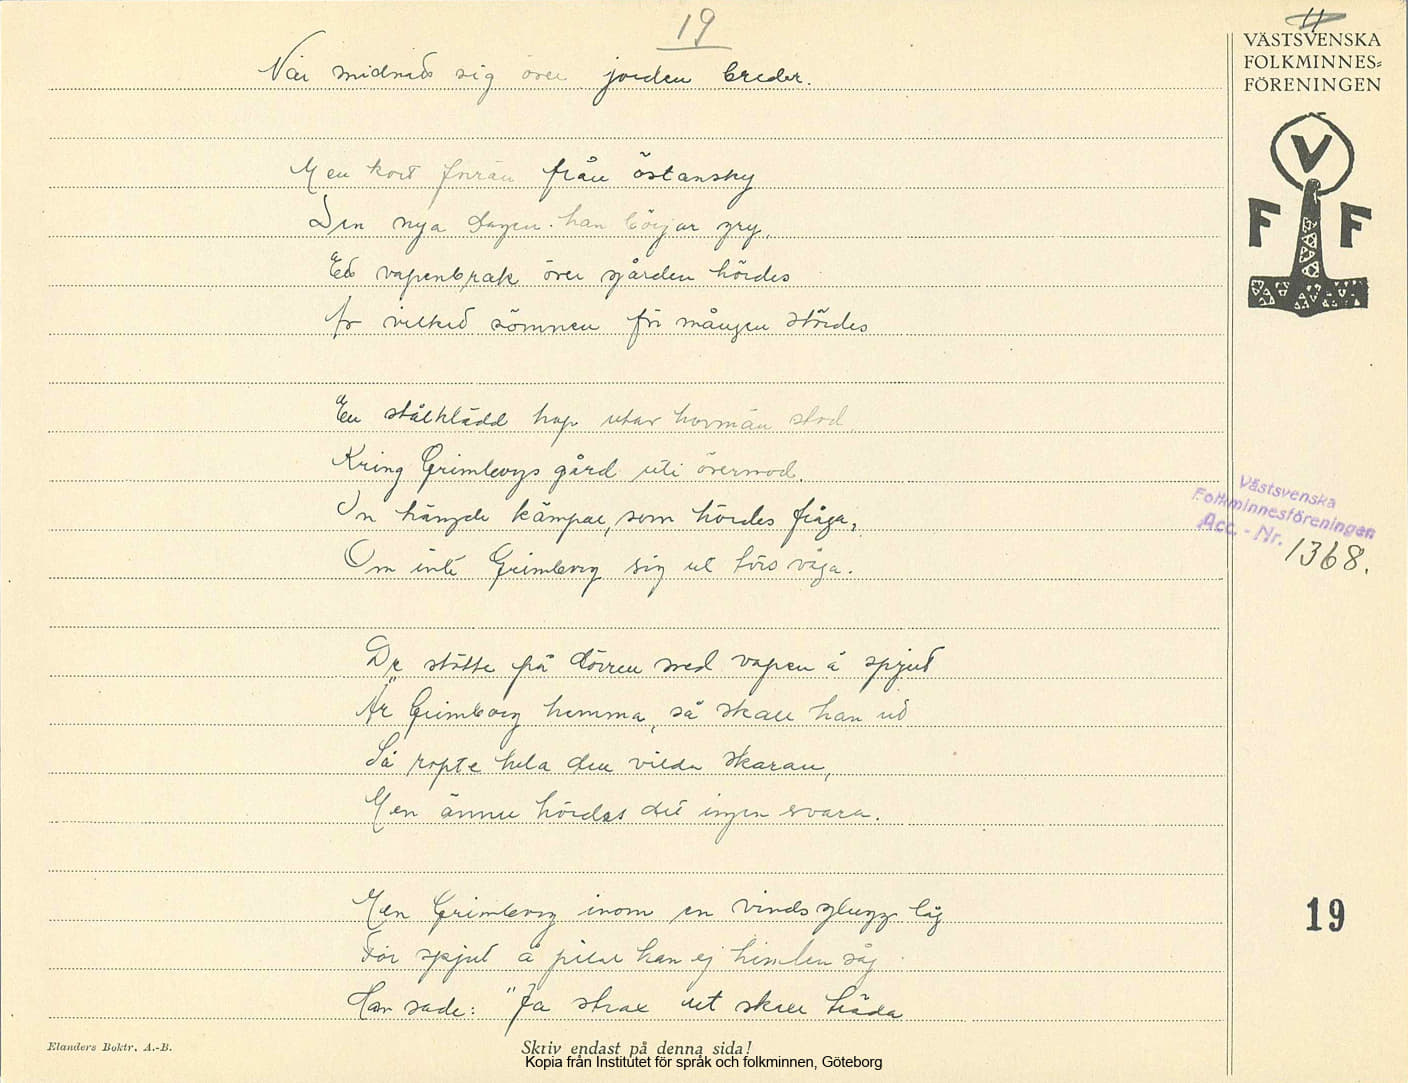 19
När midnatt sig över jorden breder.
Men kort förrän från östansky
Den nya dagen han börjar gry,
Ett vapenbrak över gården hördes
Av vilket sömnen för mången stördes
En stålklädd hop utav hovmän stod
Kring Grimborgs gård uti övermod.
En kämpe, som hördes fråga,
Om inte Grimborg sig ut törs våga.
De stötte på dörren med vapen å spjut
Är Grimborg hemma, så skall han ut
Så ropte hela den vilda skaran,
Men ännu hördes det ingen svara.
Men Grimborg inom en vindsglugg låg
För spjut å pilar han ej himlen såg
Han sade: "Ja strax ut skall träda
11
VÄSTSVENSKA
FOLKMINNES=
FÖRENINGEN
V
F F
Västsvenska
Folkminnesföreningen
Acc. - Nr. 1368.
19
Elanders Boktr. A.-B.
Skriv endast på denna sida!
Kopia från Institutet för språk och folkminnen, Göteborg